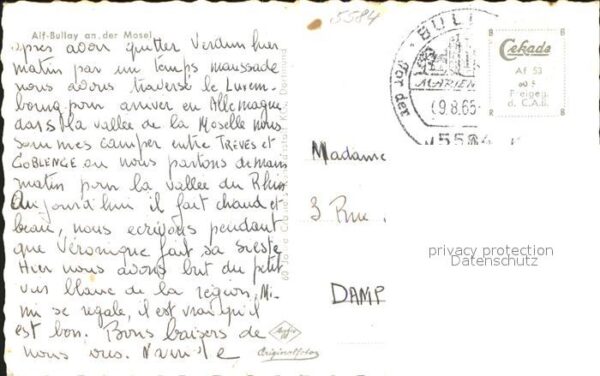 Alf-Bullay an der Mosel
après avoir quitter Verdun hier
matin par un temps maussade
nous avons traversé le Luxem-
bourg pour arriver en Allemagne
dans la vallée de la Moselle nous
sommes camper entre TREVES et
COBLENCE où nous partons demain
matin pour la vallée du Rhin
Aujourd'hui il fait chaud et
beau, nous écrivons pendant
que Véronique fait sa sieste
Hier nous avons but du petit
vin blanc de la région, Mi-
mi se régale, il est vrai qu'il
est bon. Bons baisers de
nous
Originalfoto
5584
BULL
MARIEN
9.8.65
5584
B B
Cekade
Af 53
Freigeg.
d. C.A.B.
R B
Madame
3 Rue
DAMP
privacy protection
Datenschutz